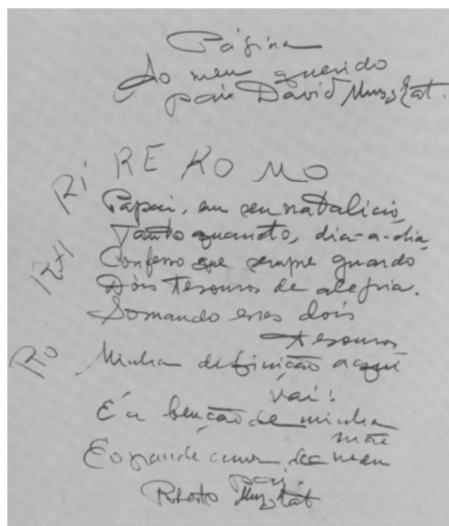 Página
Ao meu querido
pai David Muszkat.
RI RE RO MO
Papai, em seu natalício,
Tanto quanto, dia-a-dia,
Confesso que sempre guardo
Dois tesouros de alegria.
Somando esses dois
tesouros
RO Minha definição aqui
vai:
É a benção de minha
mãe
E o grande amor de meu
pai
Roberto Muszkat